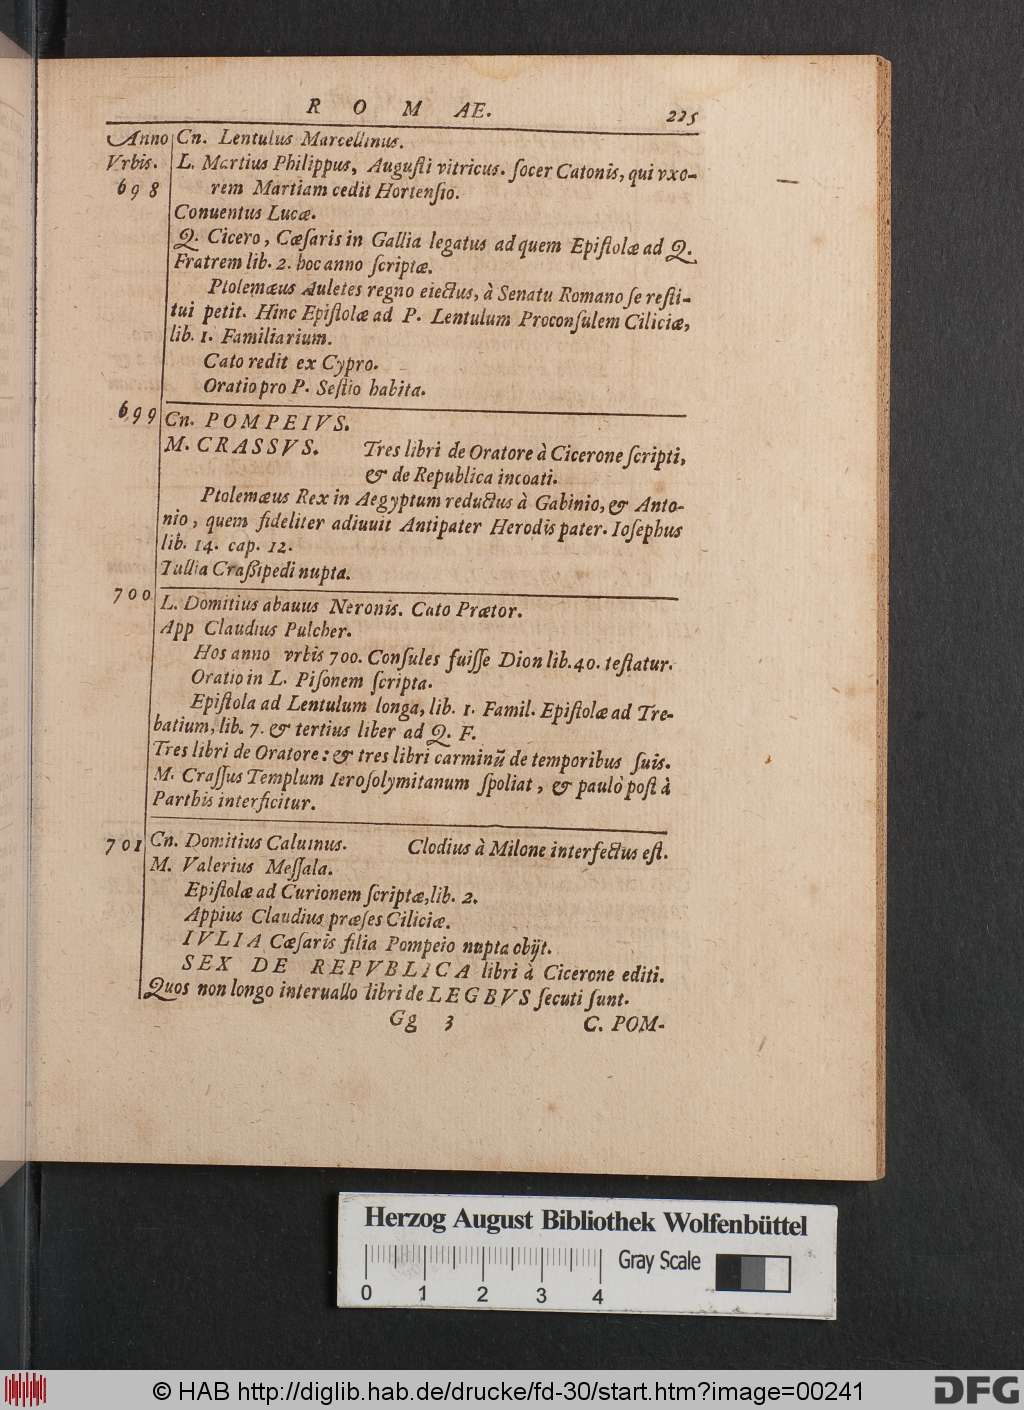 R O M AE. 225
Anno Cn. Lentulus Marcellinus.
Vrbis. L. Martius Philippus, Augusti vitricus. socer Catonis, qui vxo-
698 rem Martiam cedit Hortensio.
Conuentus Lucæ.
Q. Cicero, Cæsaris in Gallia legatus ad quem Epistolæ ad Q.
Fratrem lib. 2. hoc anno scriptæ.
Ptolemæus Auletes regno eiectus, à Senatu Romano se resti-
tui petit. Hinc Epistolæ ad P. Lentulum Proconsulem Ciliciæ,
lib. 1. Familiarium.
Cato redit ex Cypro.
Oratio pro P. Sestio habita.
699 Cn. POMPEIVS.
M. CRASSVS. Tres libri de Oratore à Cicerone scripti,
& de Republica incoati.
Ptolemæus Rex in Aegyptum reductus à Gabinio, & Anto-
nio, quem fideliter adiuuit Antipater Herodis pater. Iosephus
lib. 14. cap. 12.
Tullia Crassipedi nupta.
700 L. Domitius abauus Neronis. Cato Prætor.
App Claudius Pulcher.
Hos anno vrbis 700. Consules fuisse Dion lib. 40. testatur.
Oratio in L. Pisonem scripta.
Epistola ad Lentulum longa, lib. 1. Famil. Epistolæ ad Tre-
batium, lib. 7. & tertius liber ad Q. F.
Tres libri de Oratore: & tres libri carminũ de temporibus suis.
M. Crassus Templum Ierosolymitanum spoliat, & paulò post à
Parthis interficitur.
701 Cn. Domitius Caluinus. Clodius à Milone interfectus est.
M. Valerius Messala.
Epistolæ ad Curionem scriptæ, lib. 2.
Appius Claudius præses Ciliciæ.
IVLIA Cæsaris filia Pompeio nupta obijt.
SEX DE REPVBLICA libri à Cicerone editi.
Quos non longo interuallo libri de LEGBVS secuti sunt.
Gg 3 C. POM-
Herzog August Bibliothek Wolfenbüttel
Gray Scale
0 1 2 3 4
© HAB http://diglib.hab.de/drucke/fd-30/start.htm?image=00241
DFG